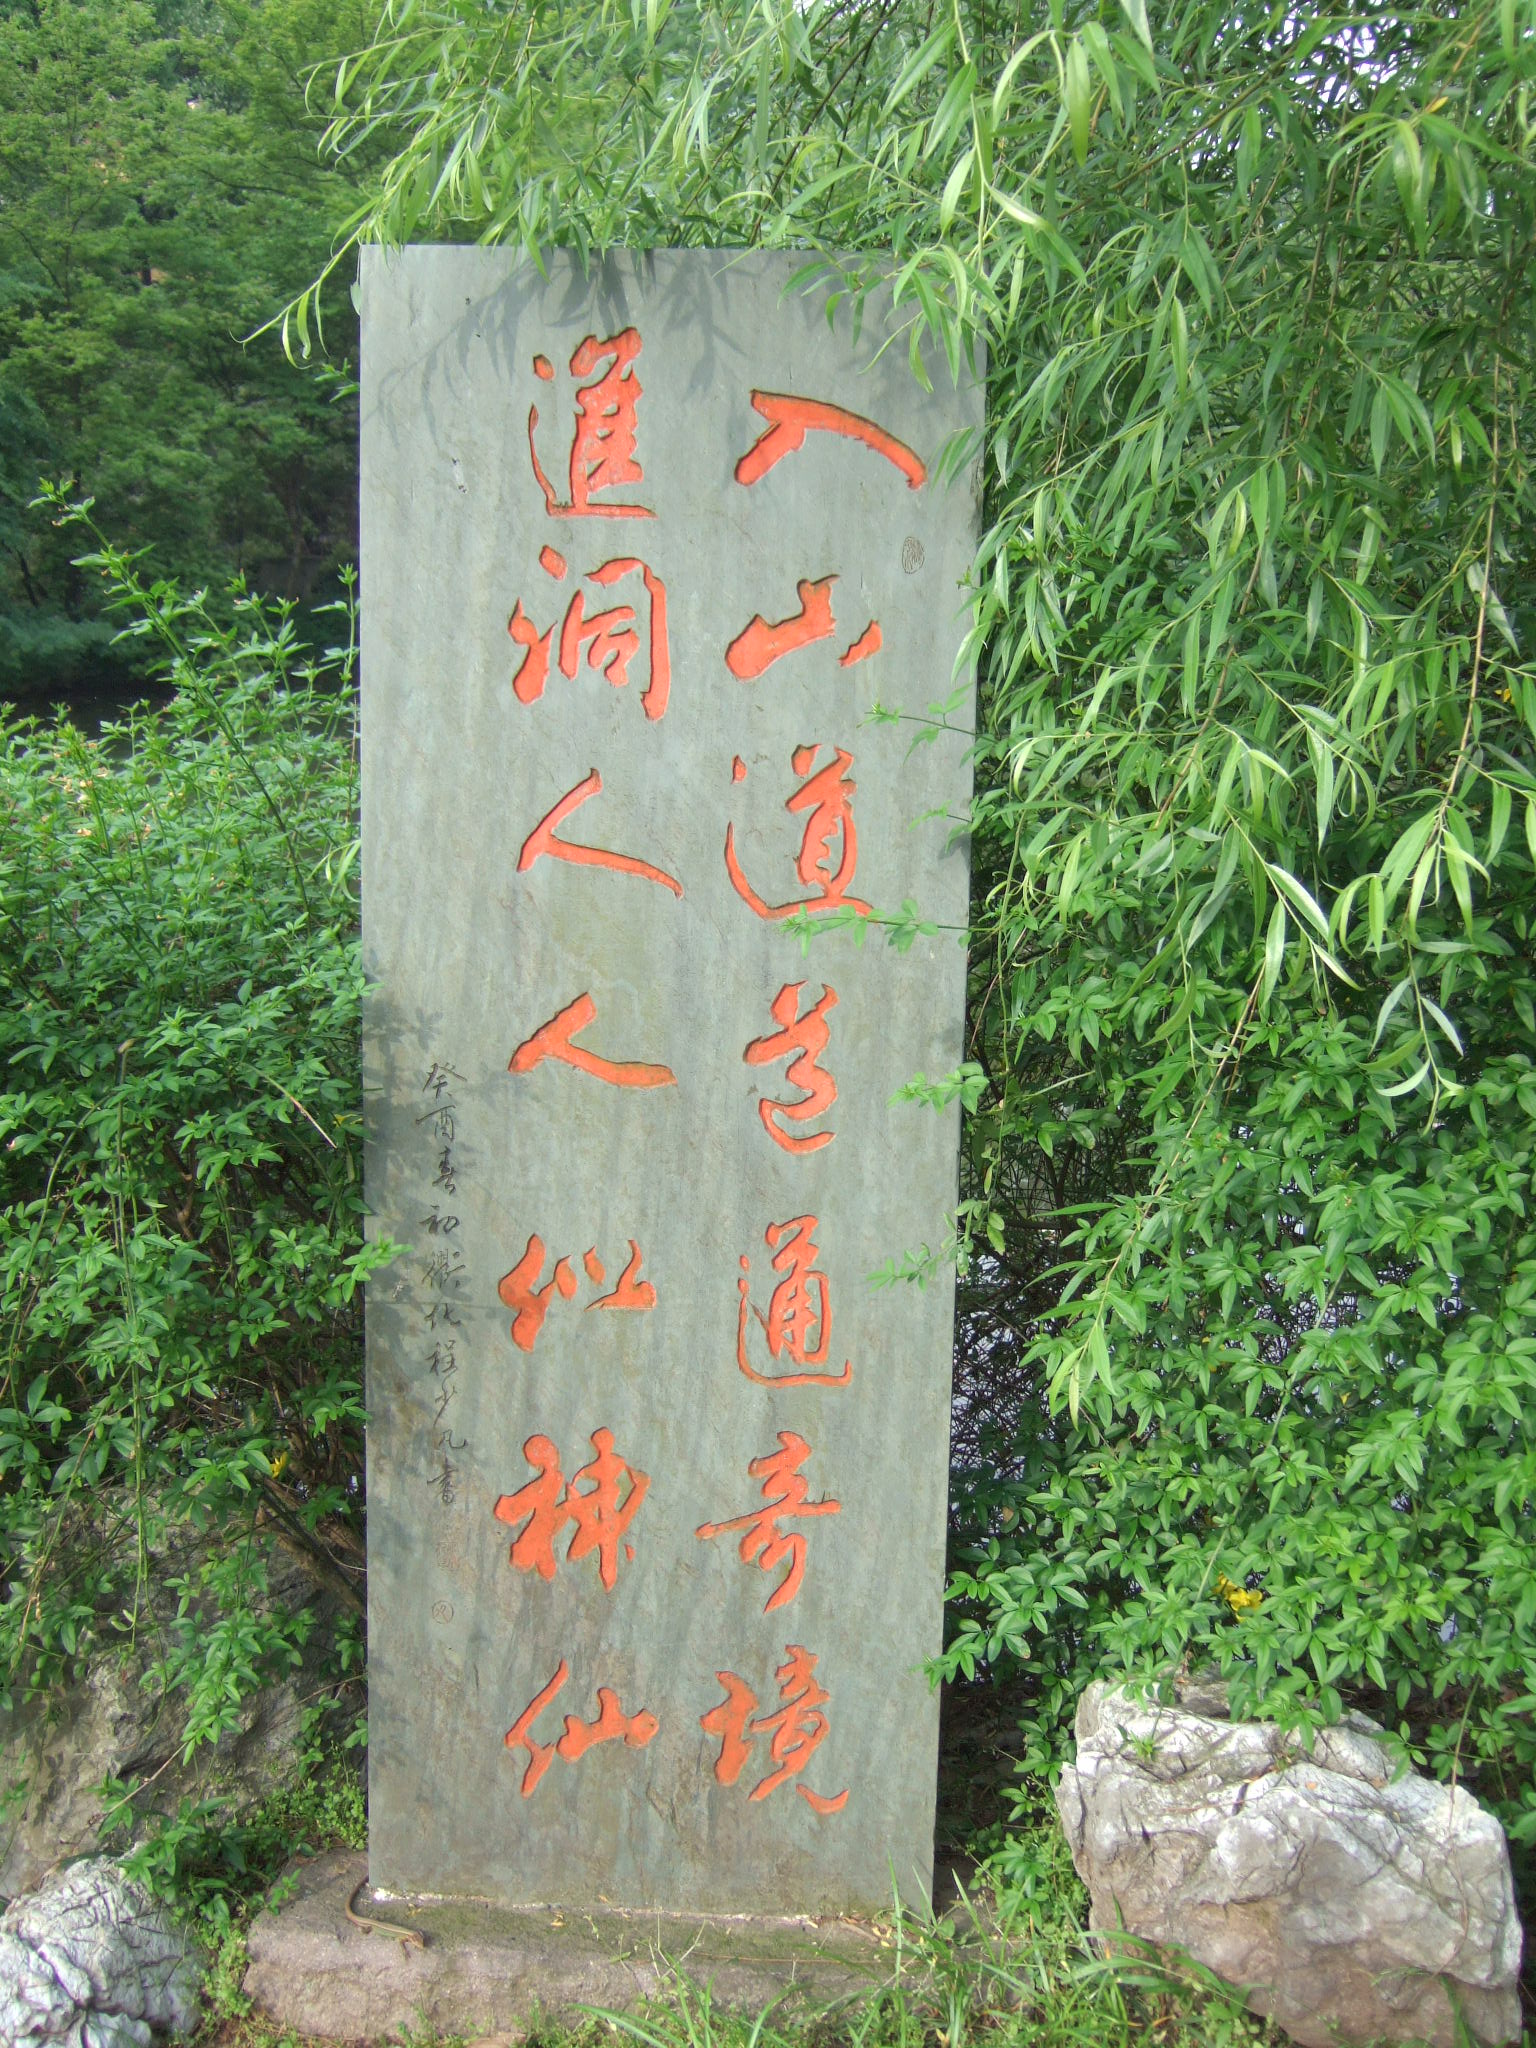 入山道道通奇境
進洞人人似神仙
癸酉春初衢化程少凡書